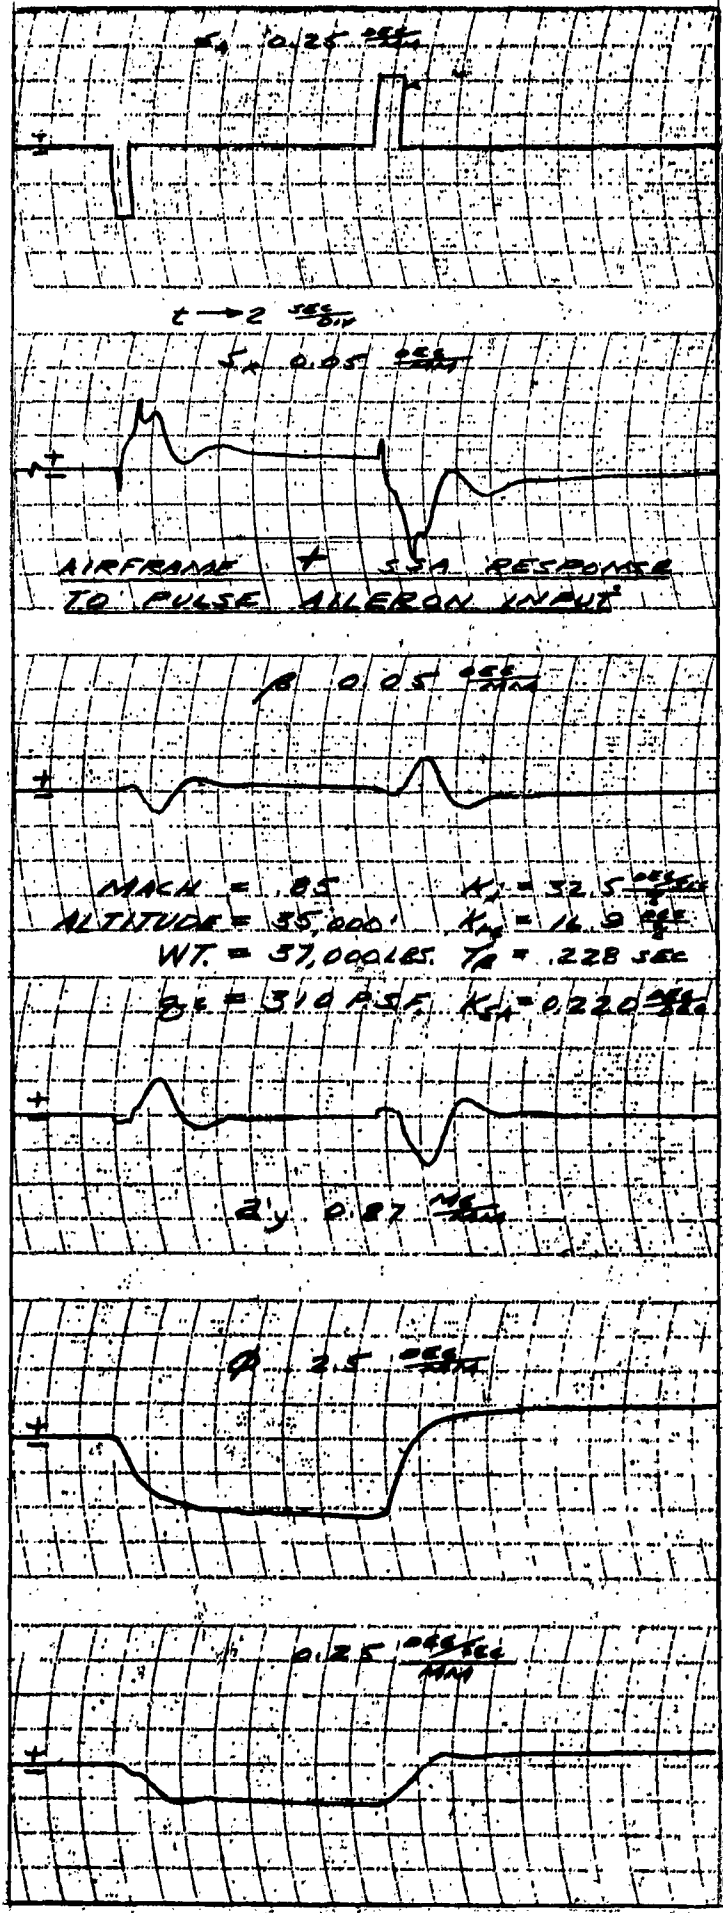 0.25 DEG/MM
t → 2 SEC/DIV
0.05 DEG/MM
AIRFRAME + SSA RESPONSE
TO PULSE AILERON INPUT
β 0.05 DEG/MM
MACH = .85
ALTITUDE = 35,000'
WT. = 37,000 LBS.
= 310 PSF.
= 32.5 DEG/SEC/g
= 16.9 DEG/g
= .228 SEC
= 0.220 DEG/SEC
a'y 0.87 Mg/MM
φ 2.5 DEG/MM
0.25 DEG/SEC/MM